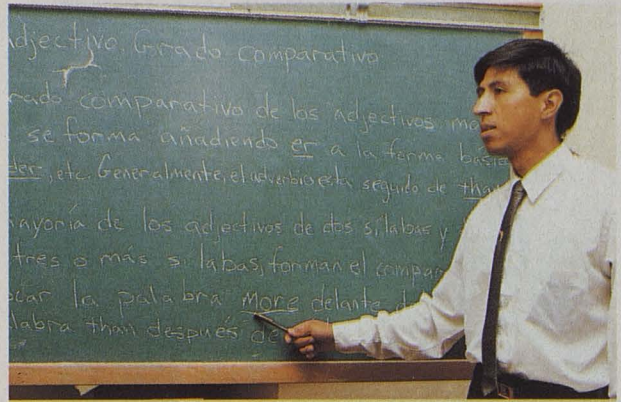 djectivo. Grado comparativo
rado comparativo de los adjectivos mo
se forma añadiendo er a la forma basic
der, etc. Generalmente, el adverbio esta seguido de than
ayoría de los adjectivos de dos sílabas y
tres o más sílabas, forman el compar
ocar la palabra more delante d
labra than después de